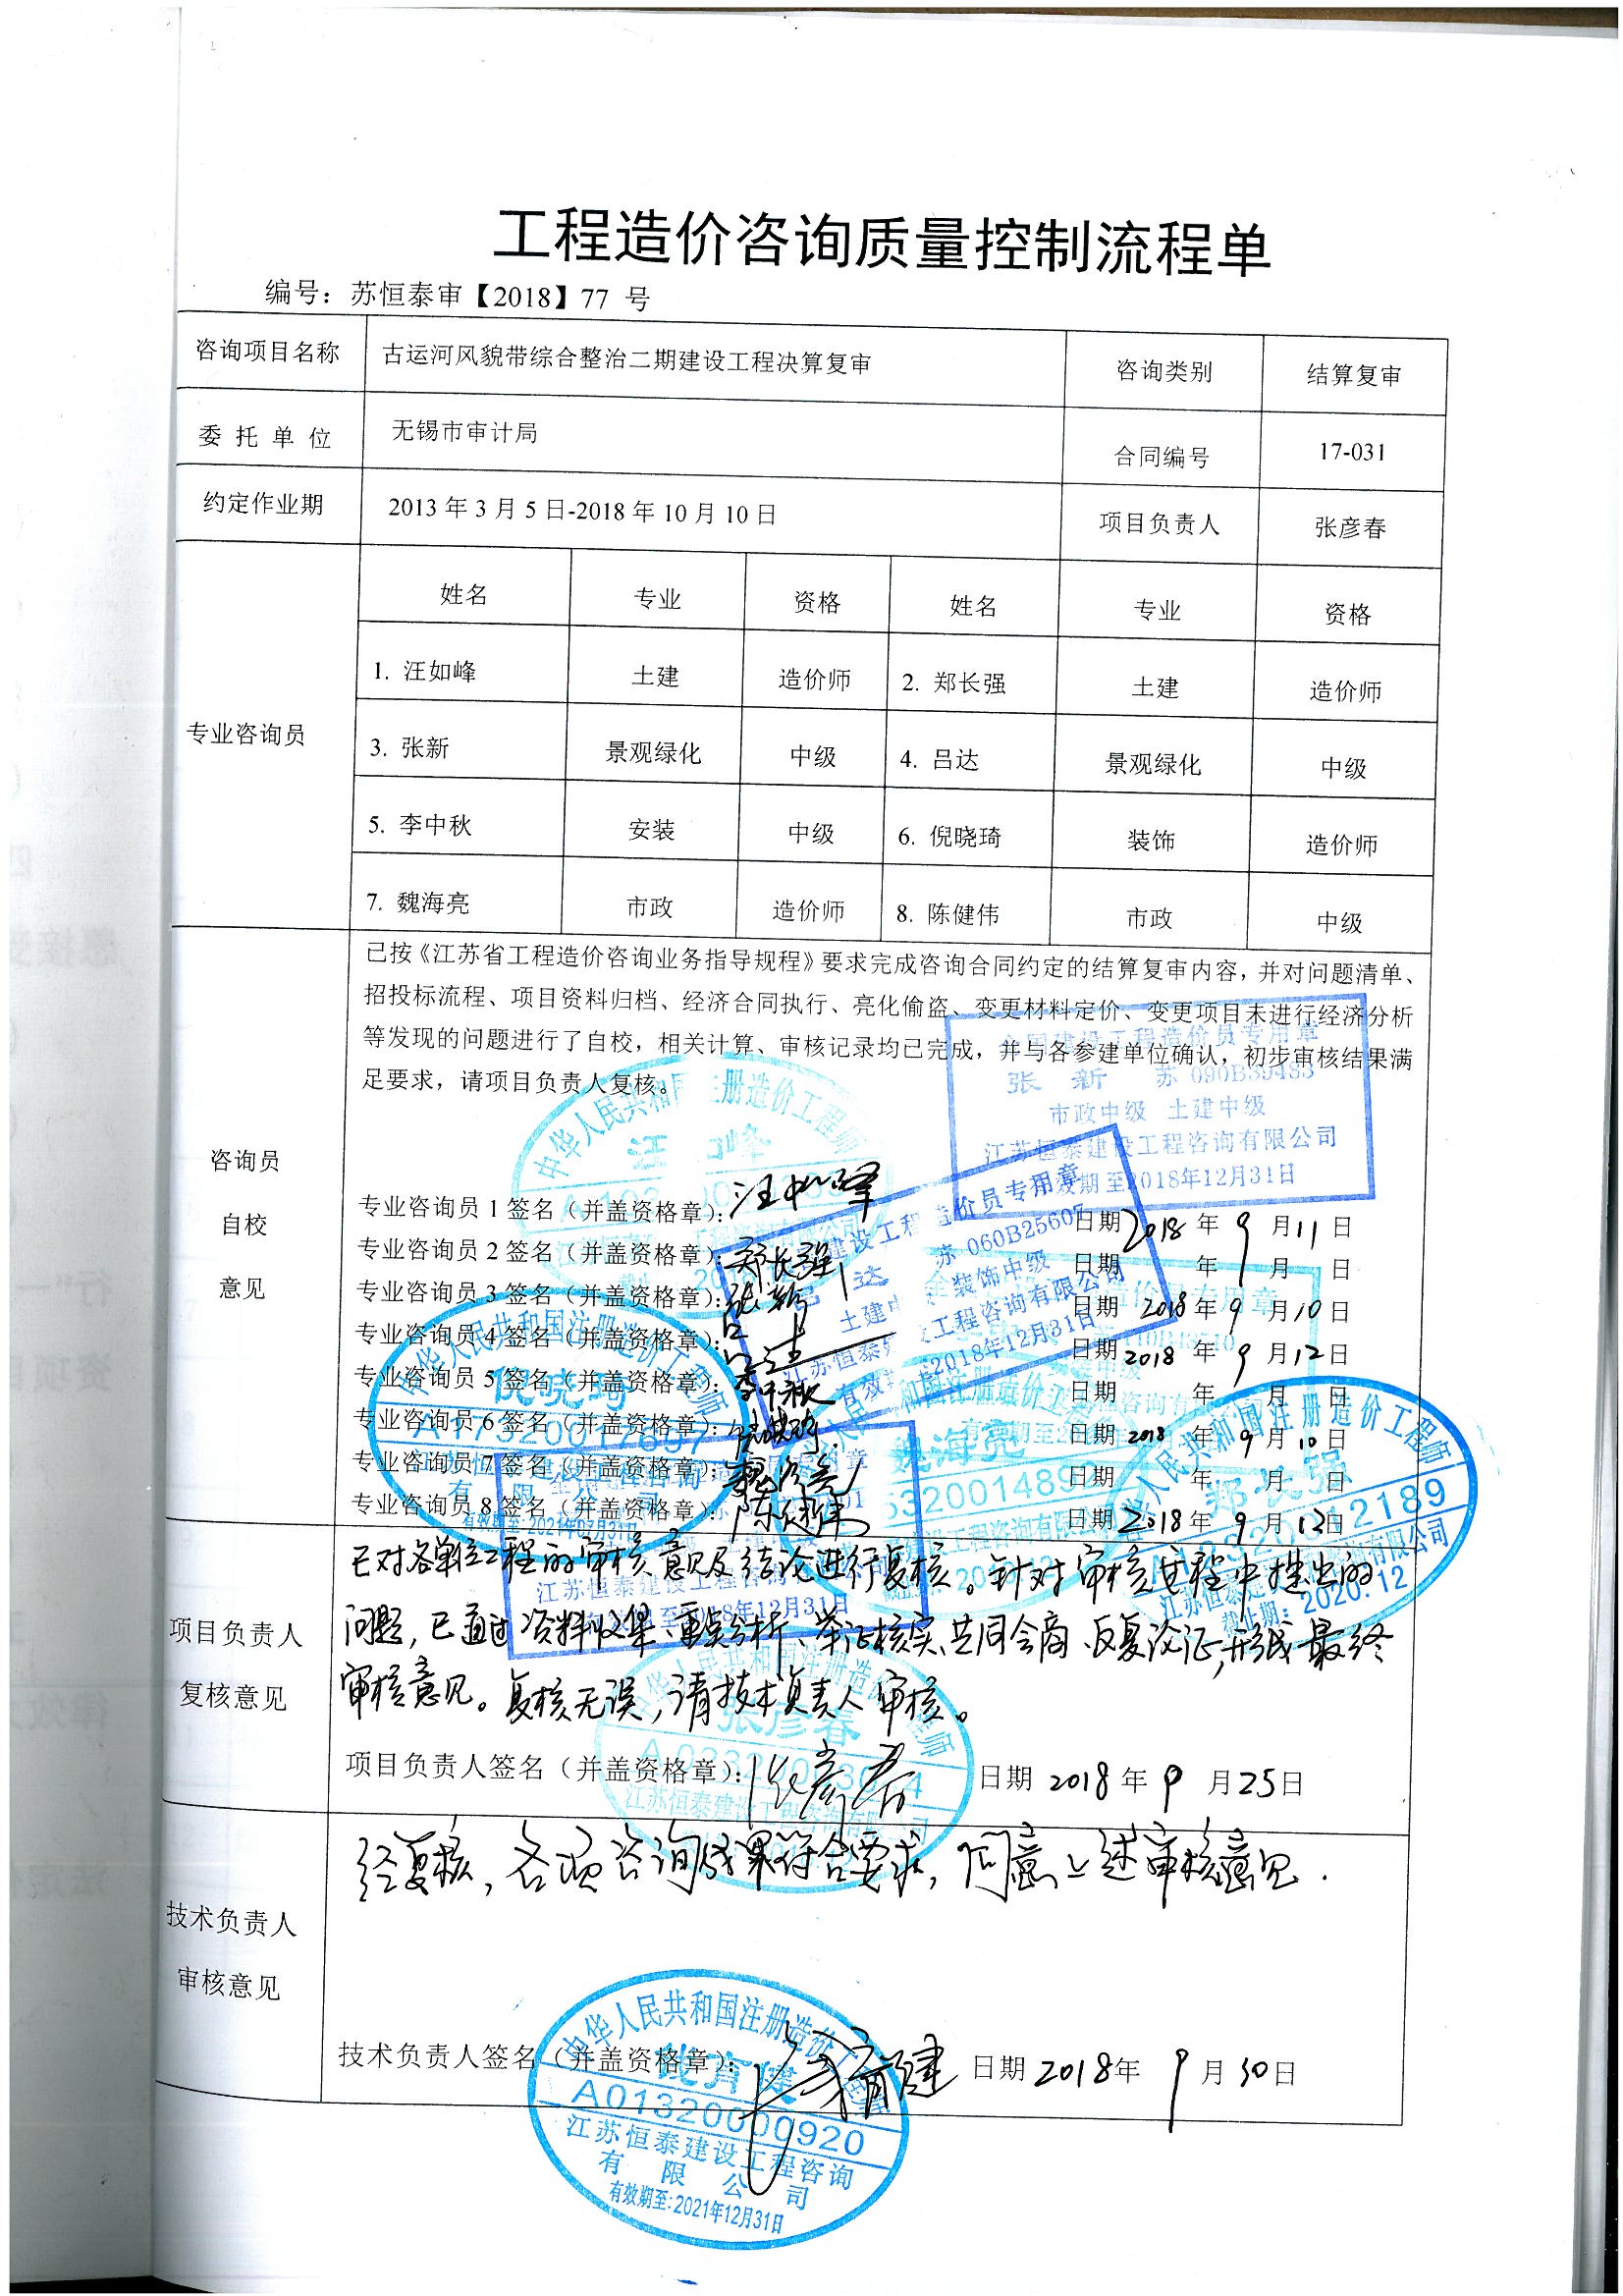 工程造价咨询质量控制流程单
编号：苏恒泰审【2018】77 号
咨询项目名称 古运河风貌带综合整治二期建设工程决算复审 咨询类别 结算复审
委 托 单 位 无锡市审计局 合同编号 17-031
约定作业期 2013 年 3 月 5 日-2018 年 10 月 10 日 项目负责人 张彦春
专业咨询员
姓名 专业 资格 姓名 专业 资格
1. 汪如峰 土建 造价师 2. 郑长强 土建 造价师
3. 张新 景观绿化 中级 4. 吕达 景观绿化 中级
5. 李中秋 安装 中级 6. 倪晓琦 装饰 造价师
7. 魏海亮 市政 造价师 8. 陈健伟 市政 中级
咨询员
自校
意见
已按《江苏省工程造价咨询业务指导规程》要求完成咨询合同约定的结算复审内容，并对问题清单、
招投标流程、项目资料归档、经济合同执行、亮化偷盗、变更材料定价、变更项目未进行经济分析
等发现的问题进行了自校，相关计算、审核记录均已完成，并与各参建单位确认，初步审核结果满
足要求，请项目负责人复核。
全国建设工程造价员专用章
张 新 苏 090B39483
市政中级 土建中级
江苏恒泰建设工程咨询有限公司
期至2018年12月31日
中华人民共和国注册造价工程师
专业咨询员 1 签名（并盖资格章）：汪如峰 日期 2018 年 9 月 11 日
专业咨询员 2 签名（并盖资格章）：郑长强 日期 年 9 月 日
专业咨询员 3 签名（并盖资格章）：张新 日期 2018 年 9 月 10 日
专业咨询员 4 签名（并盖资格章）：吕达 日期 2018 年 9 月 12 日
专业咨询员 5 签名（并盖资格章）：李中秋 日期 年 9 月 日
专业咨询员 6 签名（并盖资格章）：倪晓琦 日期 2018 年 9 月 10 日
专业咨询员 7 签名（并盖资格章）：魏海亮 日期 年 月 日
专业咨询员 8 签名（并盖资格章）：陈健伟 日期 2018 年 9 月 12 日
苏 060B25607
装饰中级
工程咨询有限公司
2018年12月31日
倪晓琦
魏海亮
郑长强
江苏恒泰建设工程咨询
项目负责人
复核意见
已对各单位工程的审核意见及结论进行复核。针对审核过程中提出的
问题，已通过资料收集、重点分析、举证核实、共同会商、反复论证，形成最终
审核意见。复核无误，请技术负责人审核。
张彦春
项目负责人签名（并盖资格章）：张彦春 日期 2018 年 9 月 25 日
江苏恒泰建设工程咨询有限公司
技术负责人
审核意见
经复核，各项咨询成果符合要求，同意上述审核意见.
中华人民共和国注册造价工程师
技术负责人签名（并盖资格章）： 日期 2018 年 9 月 30 日
A01320000920
江苏恒泰建设工程咨询
有 限 公 司
有效期至：2021年12月31日